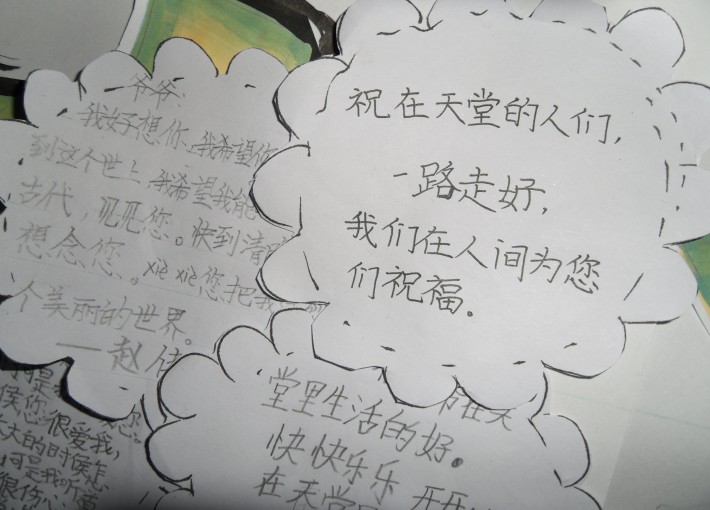 祝在天堂的人们,
一路走好,
我们在人间为您
们祝福。
爷爷:
我好想你,我希望你
到这个世上,我希望我能
古代,见见您。快到清明
想念您。xiè xiè您把我
个美丽的世界。
——赵
在天
堂里生活的好。
快快乐乐 开开
在天堂
可是
候您很爱我,您
大的时候您
可是我听
很伤心